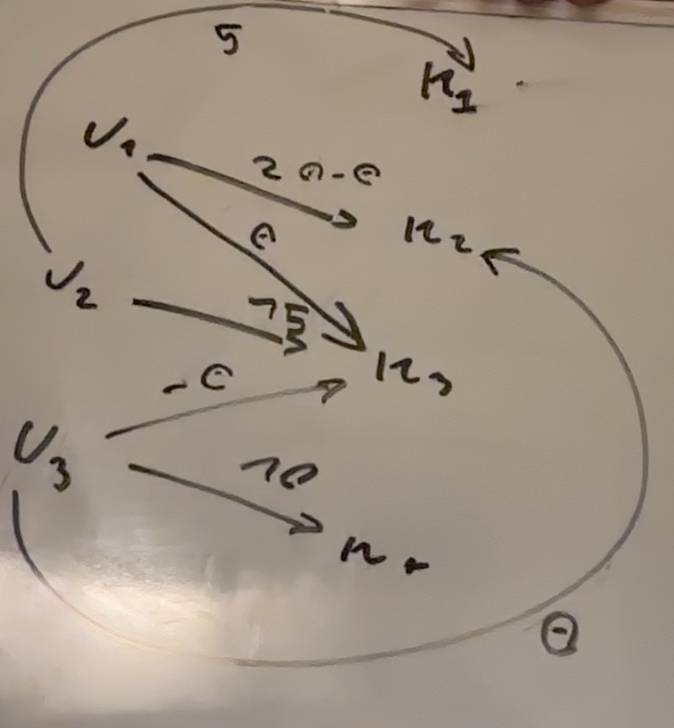 5
K1
U1
20-Θ
K2
Θ
U2
15
K3
-Θ
U3
10
K4
Θ